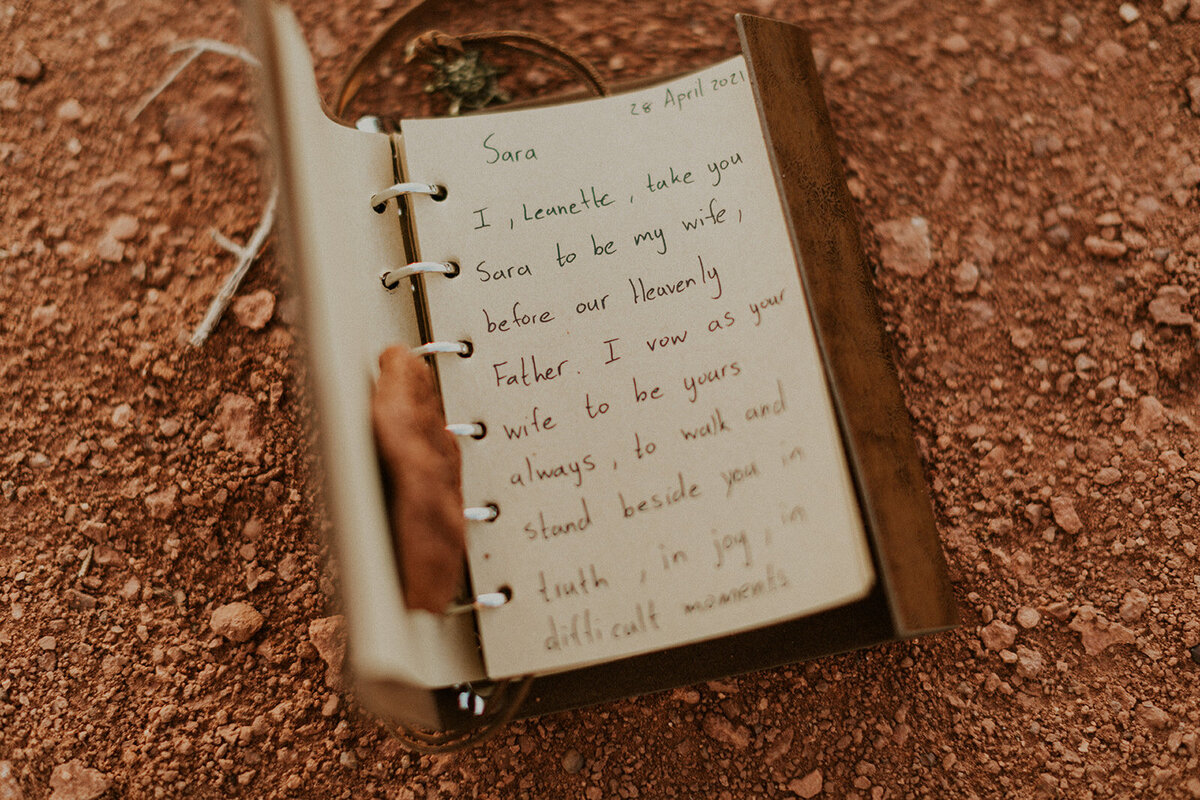 28 April 2021
Sara
I, Leanette, take you
Sara to be my wife,
before our Heavenly
Father. I vow as your
wife to be yours
always, to walk and
stand beside you in
truth, in joy, in
difficult moments